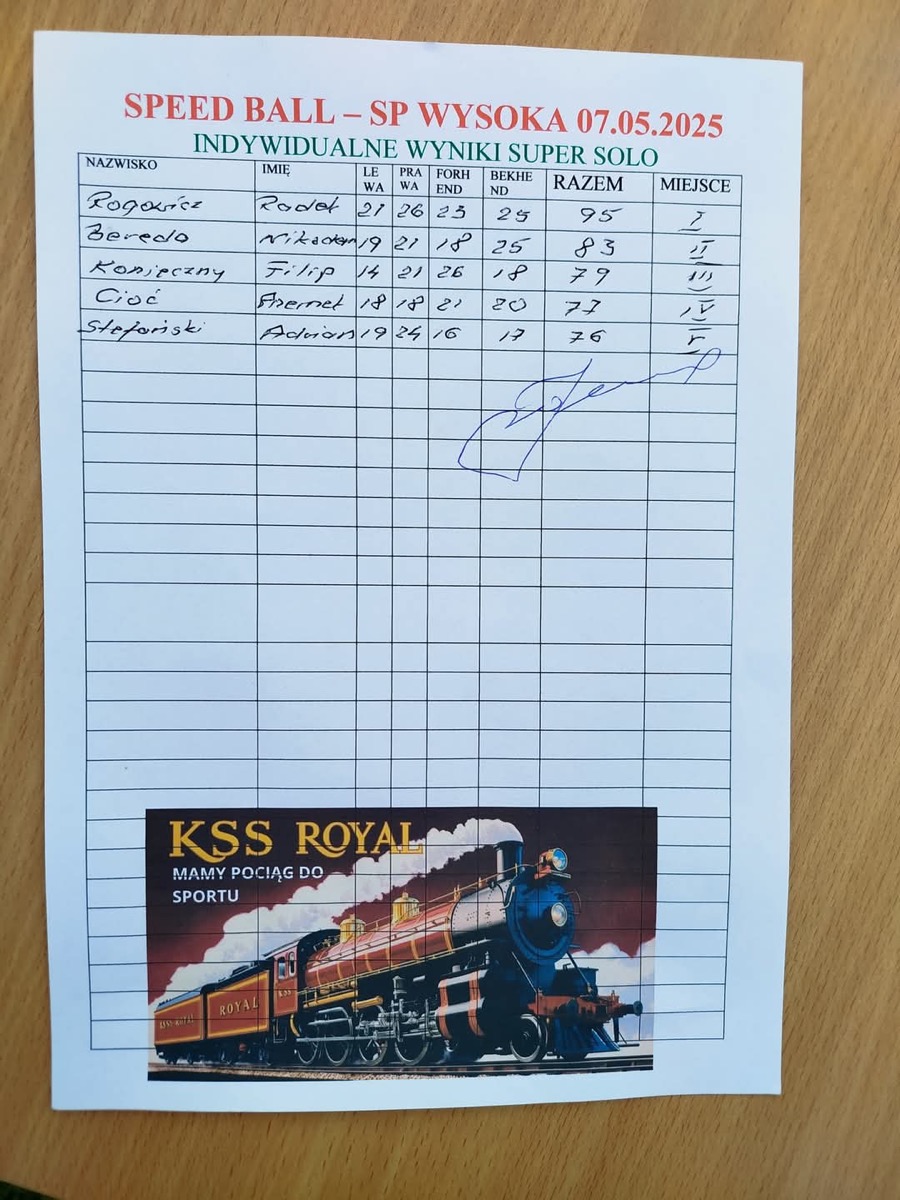 SPEED BALL – SP WYSOKA 07.05.2025
INDYWIDUALNE WYNIKI SUPER SOLO
NAZWISKO IMIĘ LE WA PRA WA FORH END BEKHE ND RAZEM MIEJSCE
Rogowicz Radek 21 26 23 25 95 I
Bereda 19 21 18 25 83 II
Konieczny Filip 14 21 26 18 79 III
Cioć 18 18 21 20 77 IV
Stefański Adrian 19 24 16 17 76 V
KSS ROYAL
MAMY POCIĄG DO
SPORTU
KSS ROYAL ROYAL KSS